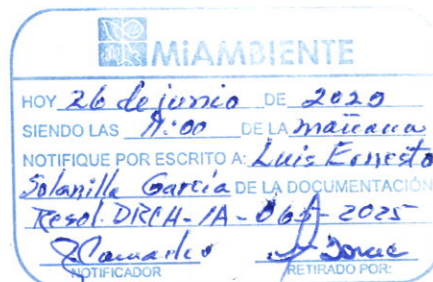 MiAMBIENTE
HOY 26 de junio DE 2020
SIENDO LAS 11:00 DE LA mañana
NOTIFIQUE POR ESCRITO A: Luis Ernesto
Solanilla García DE LA DOCUMENTACIÓN
Resol. DRCH-IA-065-2025
NOTIFICADOR RETIRADO POR: